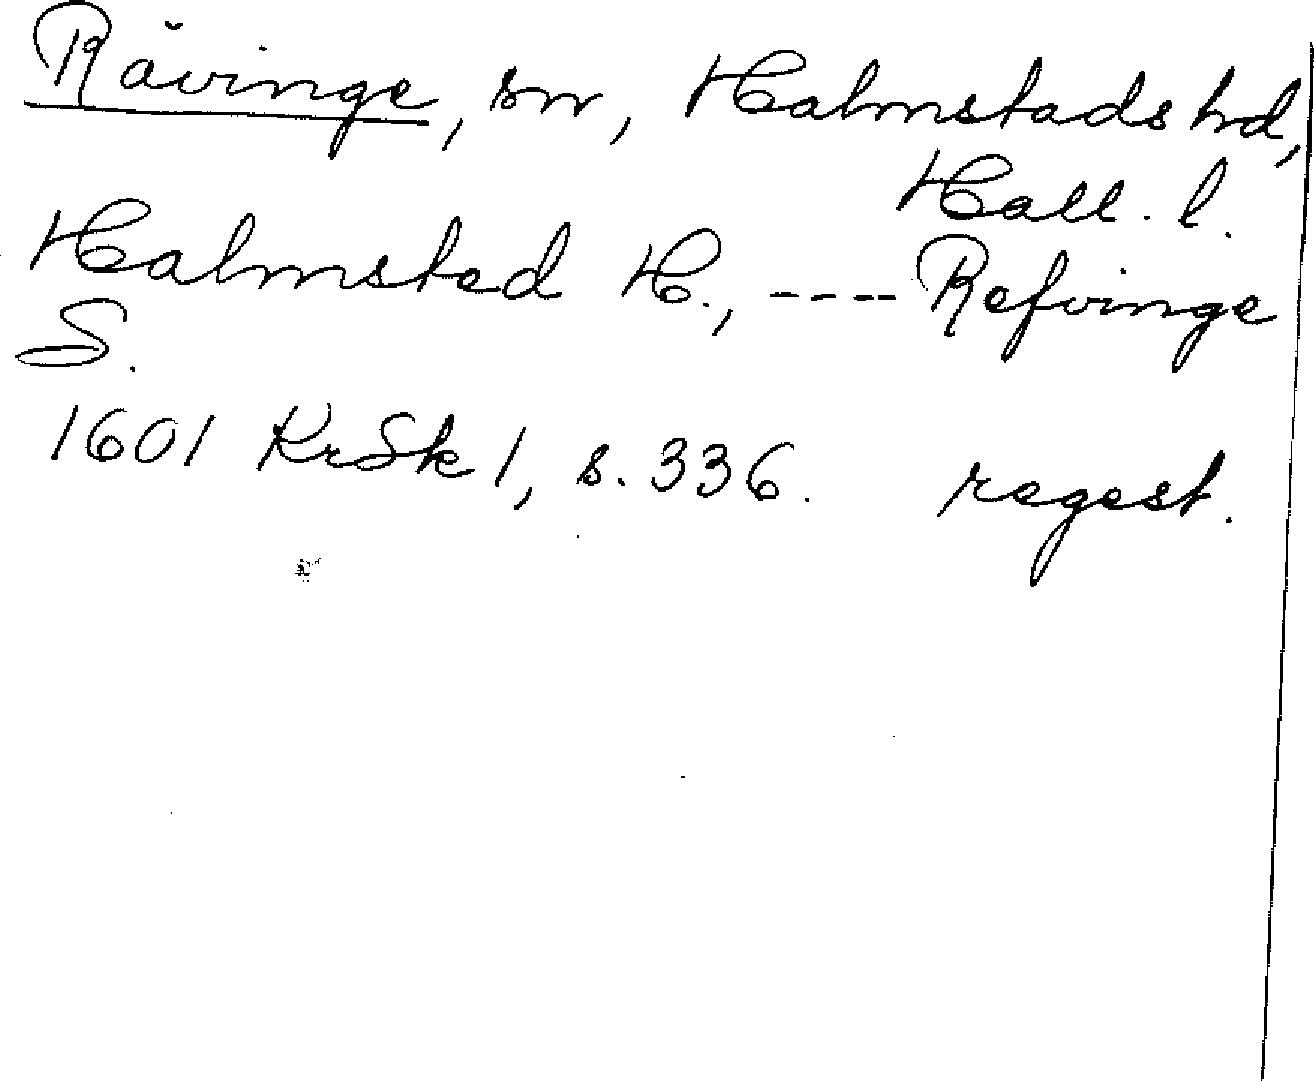 Rävinge, sn, Halmstads hd,
Hall. l.
Halmsted H., ---- Refvinge
S.
1601 KrSk 1, s. 336. regest.